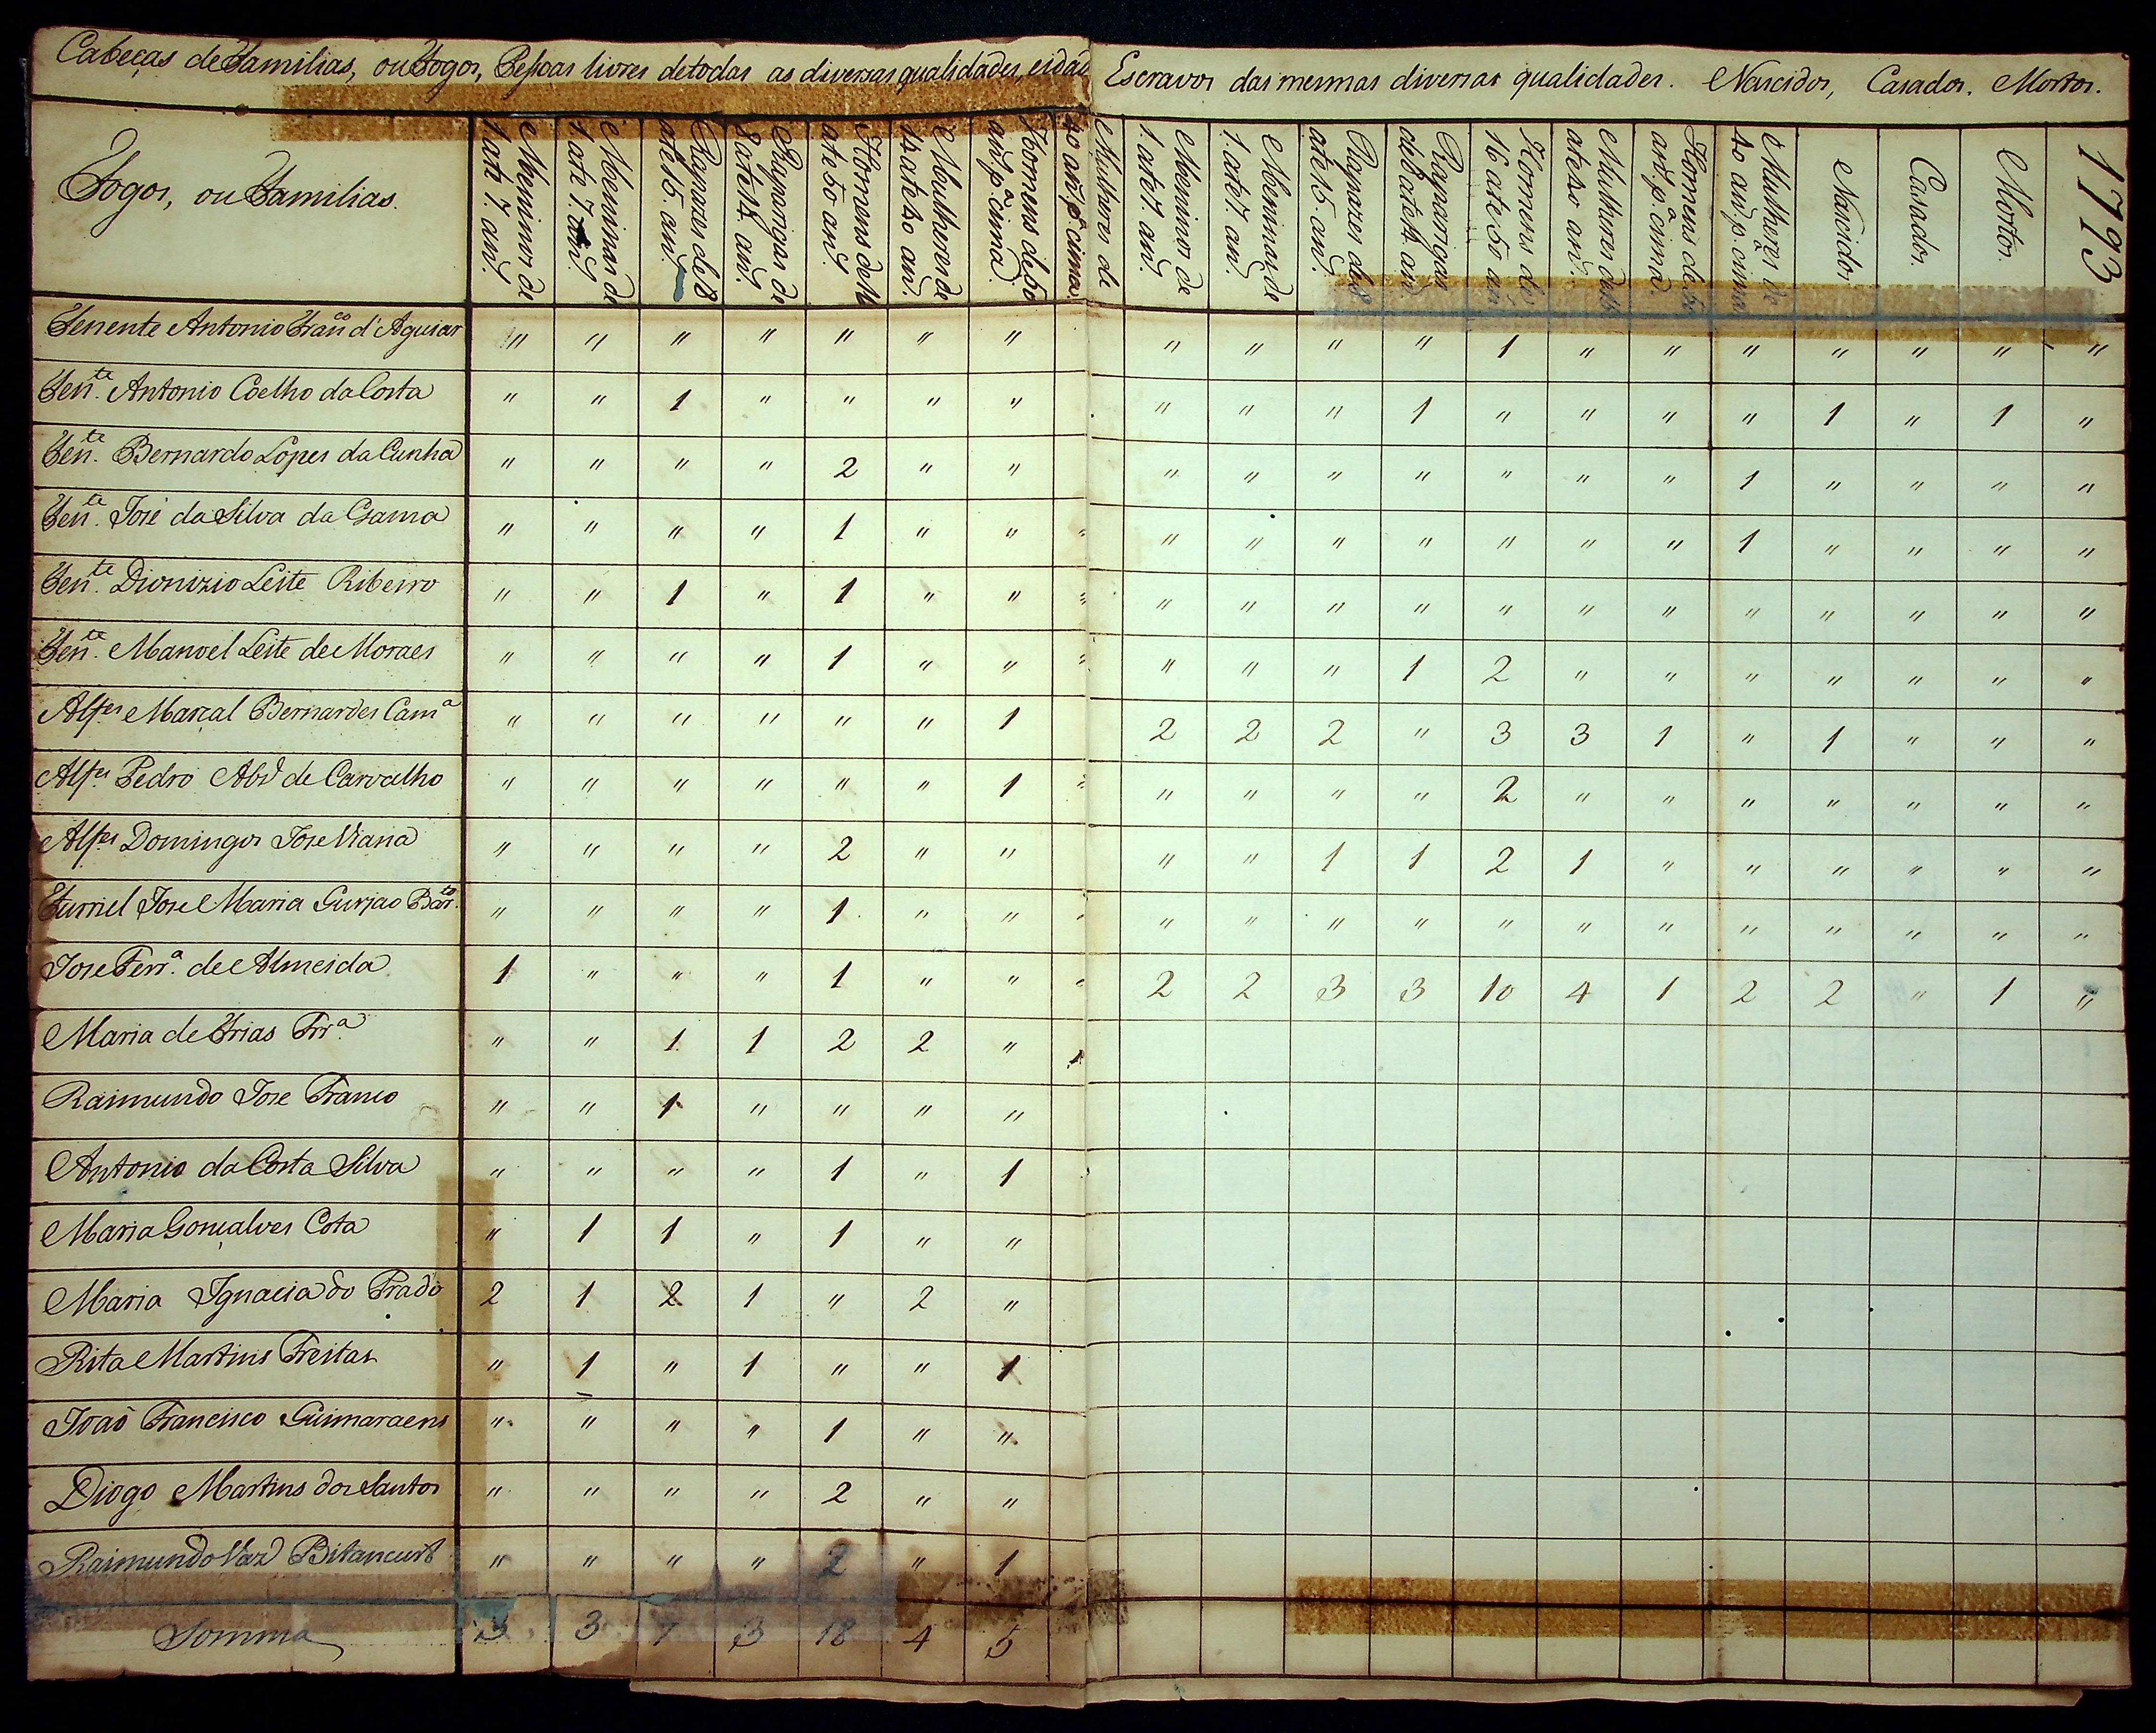 Cabeças de Familias, ou Fogos, Pessoas livres detodas as diversas qualidades, eidad Escravos das mesmas diversas qualidades. Nascidos, Casados. Mortos.
Fogos, ou Familias.
Meninos de 1 até 7. an.s
Meninas de 1. ate 7. an.s
Rapazes de 8 ate 15. an.s
Raparigas de 8 ate 14. an.s
Homens de 16 ate 50 an.s
Mulheres de 14 ate 40 an.s
Homens de 50 an.s p.a cima
Mulheres de 40 an.s p.a cima
Meninos de 1. ate 7. an.s
Meninas de 1. ate 7. an.s
Rapazes de 8 ate 15. an.s
Raparigas de 8 ate 14. an.s
Homens de 16 ate 50 an
Mulheres de 14 ate 40 an.s
Homens de 50 an.s p.a cima
Mulheres de 40 an.s p.a cima
Nascidos
Casados.
Mortos.
1793
Tenente Antonio Fran.co d'Aguiar " " " " " " " " " " " 1 " " " " " " "
Ten.te Antonio Coelho da Costa " " 1 " " " " " " " 1 " " " " 1 " 1 "
Ten.te Bernardo Lopes da Cunha " " " " 2 " " " " " " " " " 1 " " " "
Ten.te José da Silva da Gama " " " " 1 " " " " " " " " " " 1 " " " "
Ten.te Dionizio Leite Ribeiro " " 1 " 1 " " " " " " " " " " " " " " "
Ten.te Manoel Leite de Moraes " " " " 1 " " " " " " 1 2 " " " " " " "
Alf.es Marçal Bernardes Cam.a " " " " " " 1 2 2 2 " 3 3 1 " 1 " " "
Alf.es Pedro Abd de Carvalho " " " " " " 1 " " " " " 2 " " " " " " "
Alf.es Domingos Jose Viana " " " " 2 " " " " 1 1 2 1 " " " " " "
Eturriel Jose Maria Gurjao Bar.to " " " " 1 " " " " " " " " " " " " " " "
Jose Ferr.a de Almeida 1 " " " 1 " " " 2 2 3 3 10 4 1 2 2 " 1 "
Maria de Frias Frr.a " " 1 1 2 2 " 1
Raimundo Jose Franco " " 1 " " " "
Antonio da Costa Silva " " " " 1 " 1
Maria Gonçalves Cota " 1 1 " 1 " "
Maria Ignacia do Prado 2 1 2 1 " 2 "
Rita Martins Freitas " 1 " 1 " " 1
João Francisco Guimaraens " " " " 1 " "
Diogo Martins dos Santos " " " " 2 " "
Raimundo Vaz Bitancurt " " " " 2 " 1
Somma 3 3 7 3 18 4 5